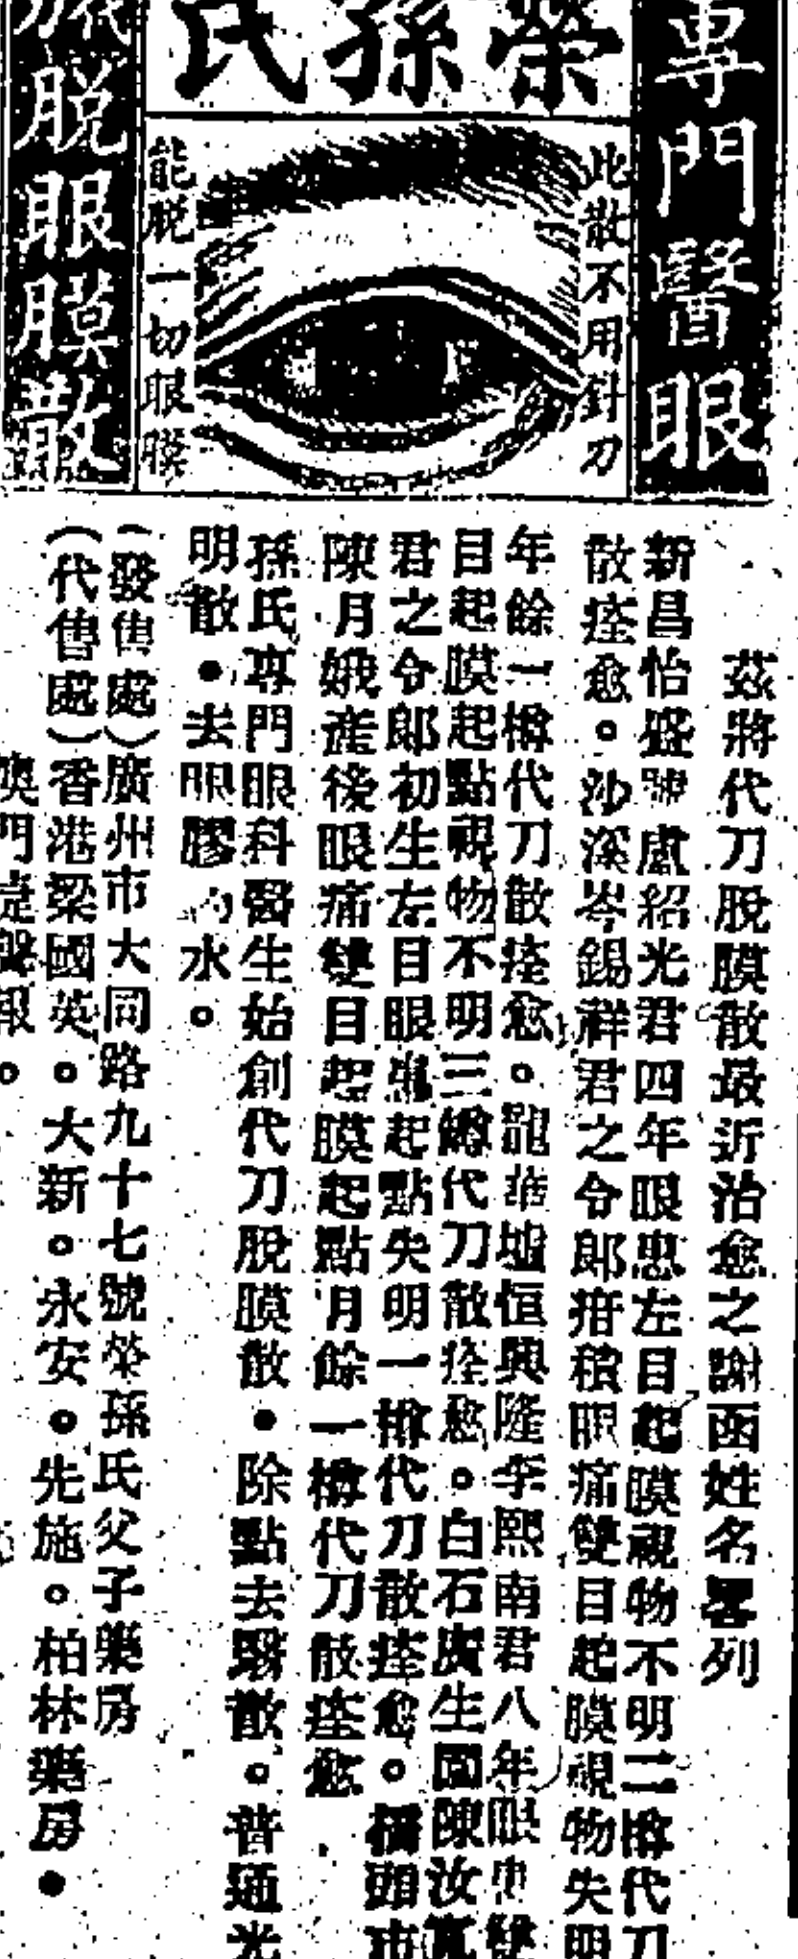 專門醫眼
榮孫氏
此散不用針刀
能脫一切眼膜
脫眼膜散
茲將代刀脫膜散最近治愈之謝函姓名畧列
新昌怡盛號盧紹光君四年眼患左目起膜視物不明二樽代刀
散痊愈。沙溪岑錫祥君之令郎疳積眼痛雙目起膜視物失明
年餘一樽代刀散痊愈。龍華墟恒興隆李熙南君八年眼患雙
目起膜起點視物不明三樽代刀散痊愈。白石廣生園陳汝
君之令郎初生左目眼患起點失明一樽代刀散痊愈。橋頭市
陳月娥產後眼痛雙目起膜起點月餘一樽代刀散痊愈
孫氏專門眼科醫生始創代刀脫膜散●除點去翳散。普通光
明散●去眼膠 水。
(發售處)廣州市大同路九十七號榮孫氏父子藥房
(代售處)香港梁國英。大新。永安。先施。柏林藥房●
澳門 聲報。